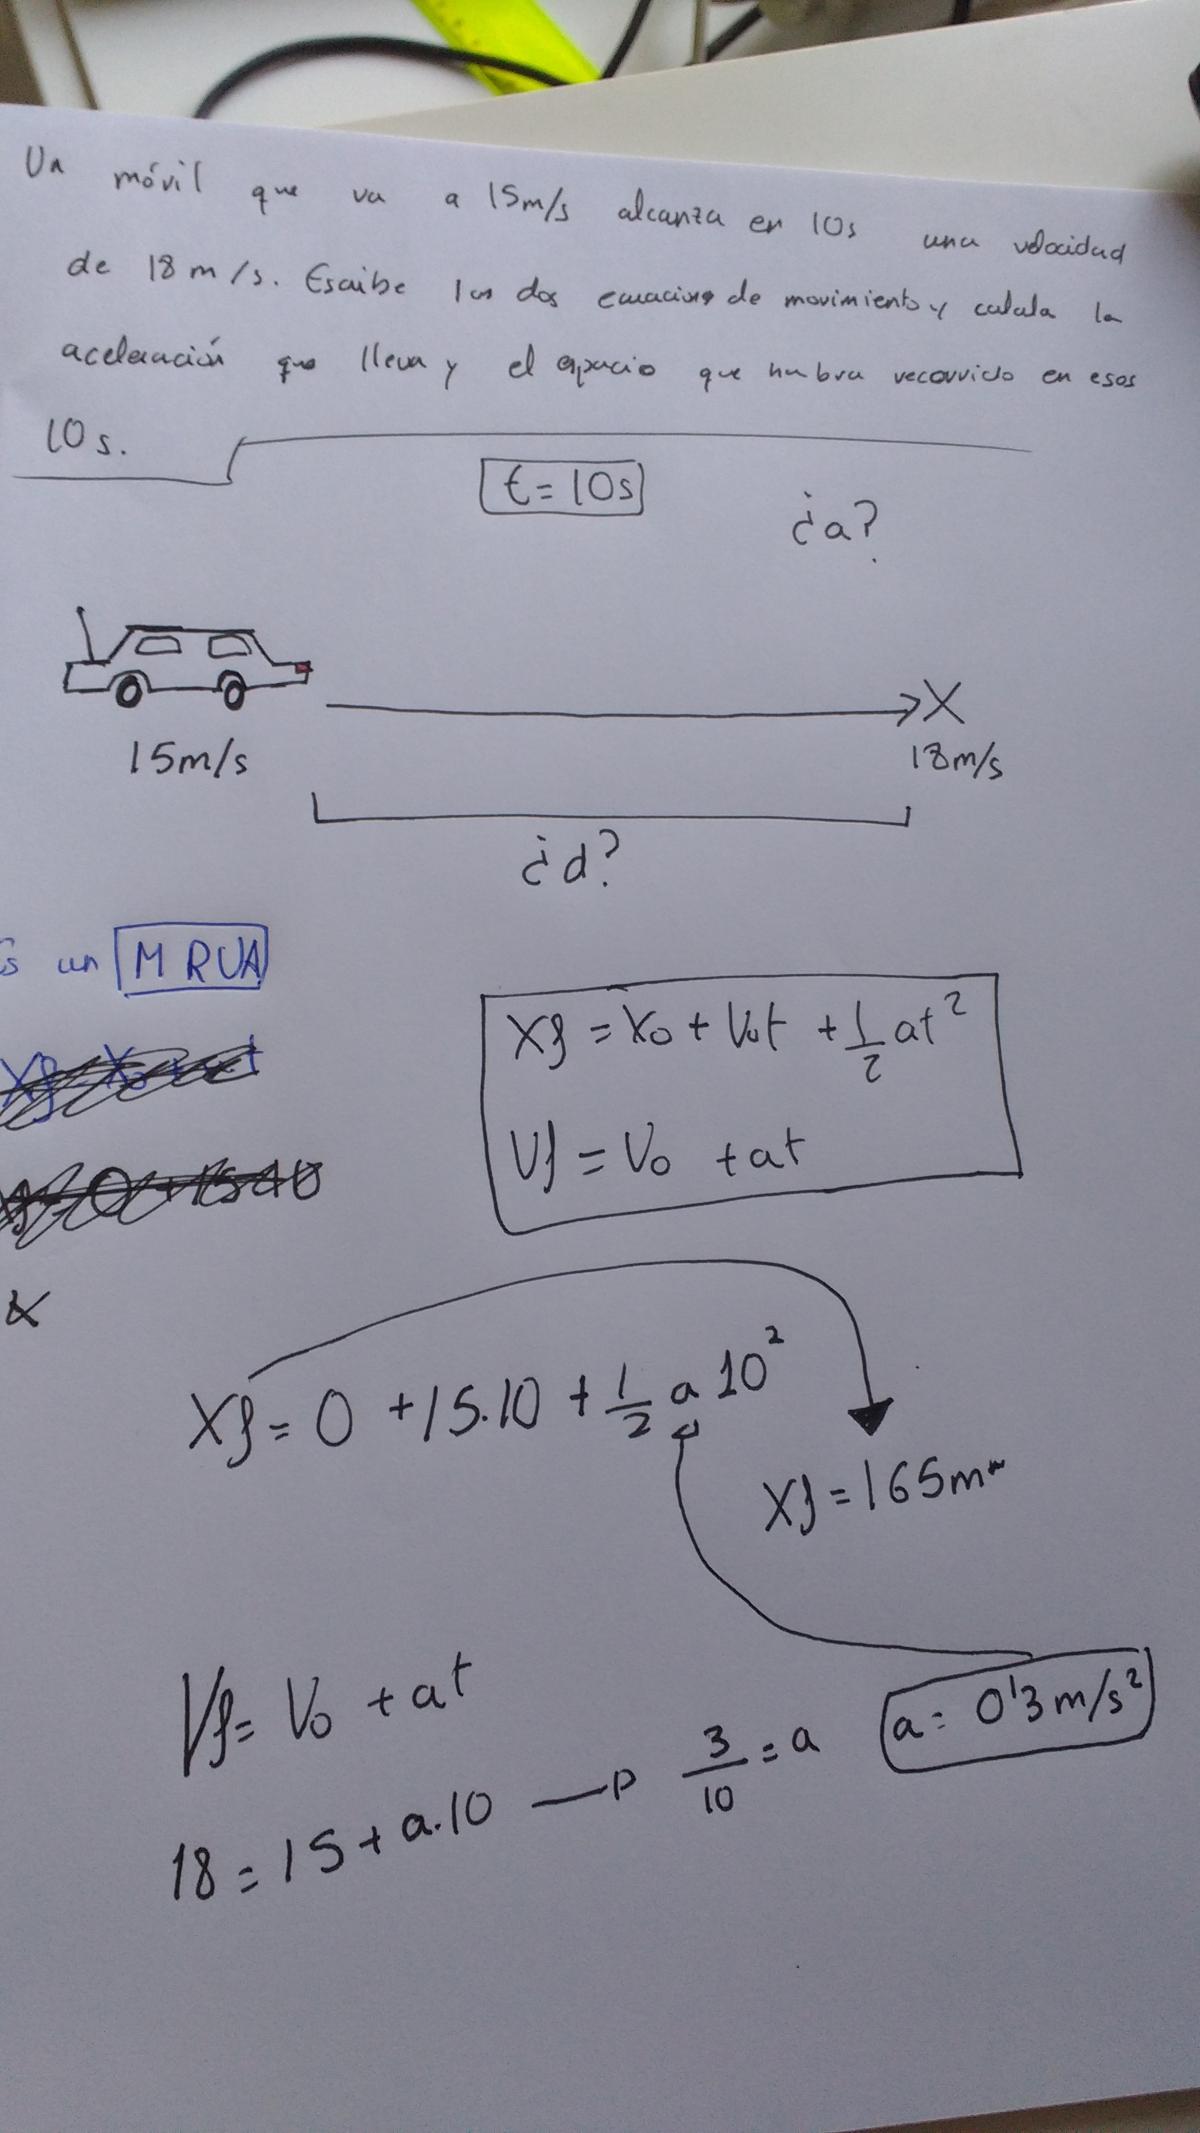 Un móvil que va a 15m/s alcanza en 10s una velocidad
de 18 m/s. Escribe las dos ecuaciones de movimiento y calcula la
aceleración que lleva y el espacio que habra recorrido en esos
10s.
t = 10s
¿a?
X
15m/s
18m/s
¿d?
un MRUA
Xf = X0 + V0t + 1/2 at²
Vf = V0 + at
Xf = 0 + 15.10 + 1/2 a 10²
Xf = 165m
Vf = V0 + at
a = 0'3 m/s²
18 = 15 + a.10 → 3/10 = a